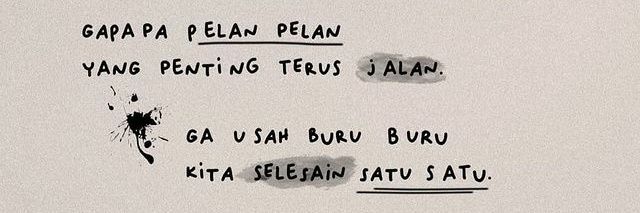 GAPAPA PELAN PELAN
YANG PENTING TERUS JALAN.
GA USAH BURU BURU
KITA SELESAIN SATU SATU.